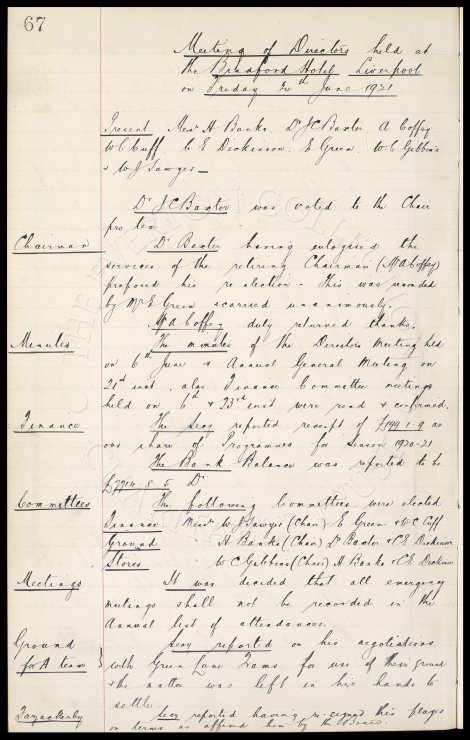 67
Meeting of Directors held at
the Bradford Hotel Liverpool
on Friday 24th June 1921
Present Messrs H Banks. Dr J C Baxter. A Coffey
W C Cuff. C E Dickinson. E Green. W C Gibbins
& W J Sawyer –
Dr J C Baxter was voted to the Chair
pro tem
Chairman Dr Baxter having eulogised the
services of the retiring Chairman (Mr A Coffey)
proposed his re-election – This was seconded
by Mr E Green & carried unanimously.
Mr A Coffey duly returned thanks.
Minutes The minutes of the Directors Meeting held
on 6th June & Annual General Meeting on
21st inst, also Finance Committee meetings
held on 6th & 23rd inst were read & confirmed.
Finance The Secy reported receipt of £199-1-9 as
our share of Programmes for Season 1920-21
The Bank Balance was reported to be
£7714. 8. 5 Dr
Committees The following Committees were elected
Finance Messrs W J Sawyer (Chair) E Green & W C Cuff
Ground H Banks (Chair) Dr Baxter & C E Dickinson
Stores W C Gibbins (Chair) H Banks & C E Dickinson
Meetings It was decided that all emergency
meetings shall not be recorded in the
Annual list of attendances.
Ground for A team Secy reported on his negotiations
with Green Lane Trams for use of their ground
& the matter was left in his hands to
settle
Secy reported having re-signed this player
on terms as offered him by the Board.